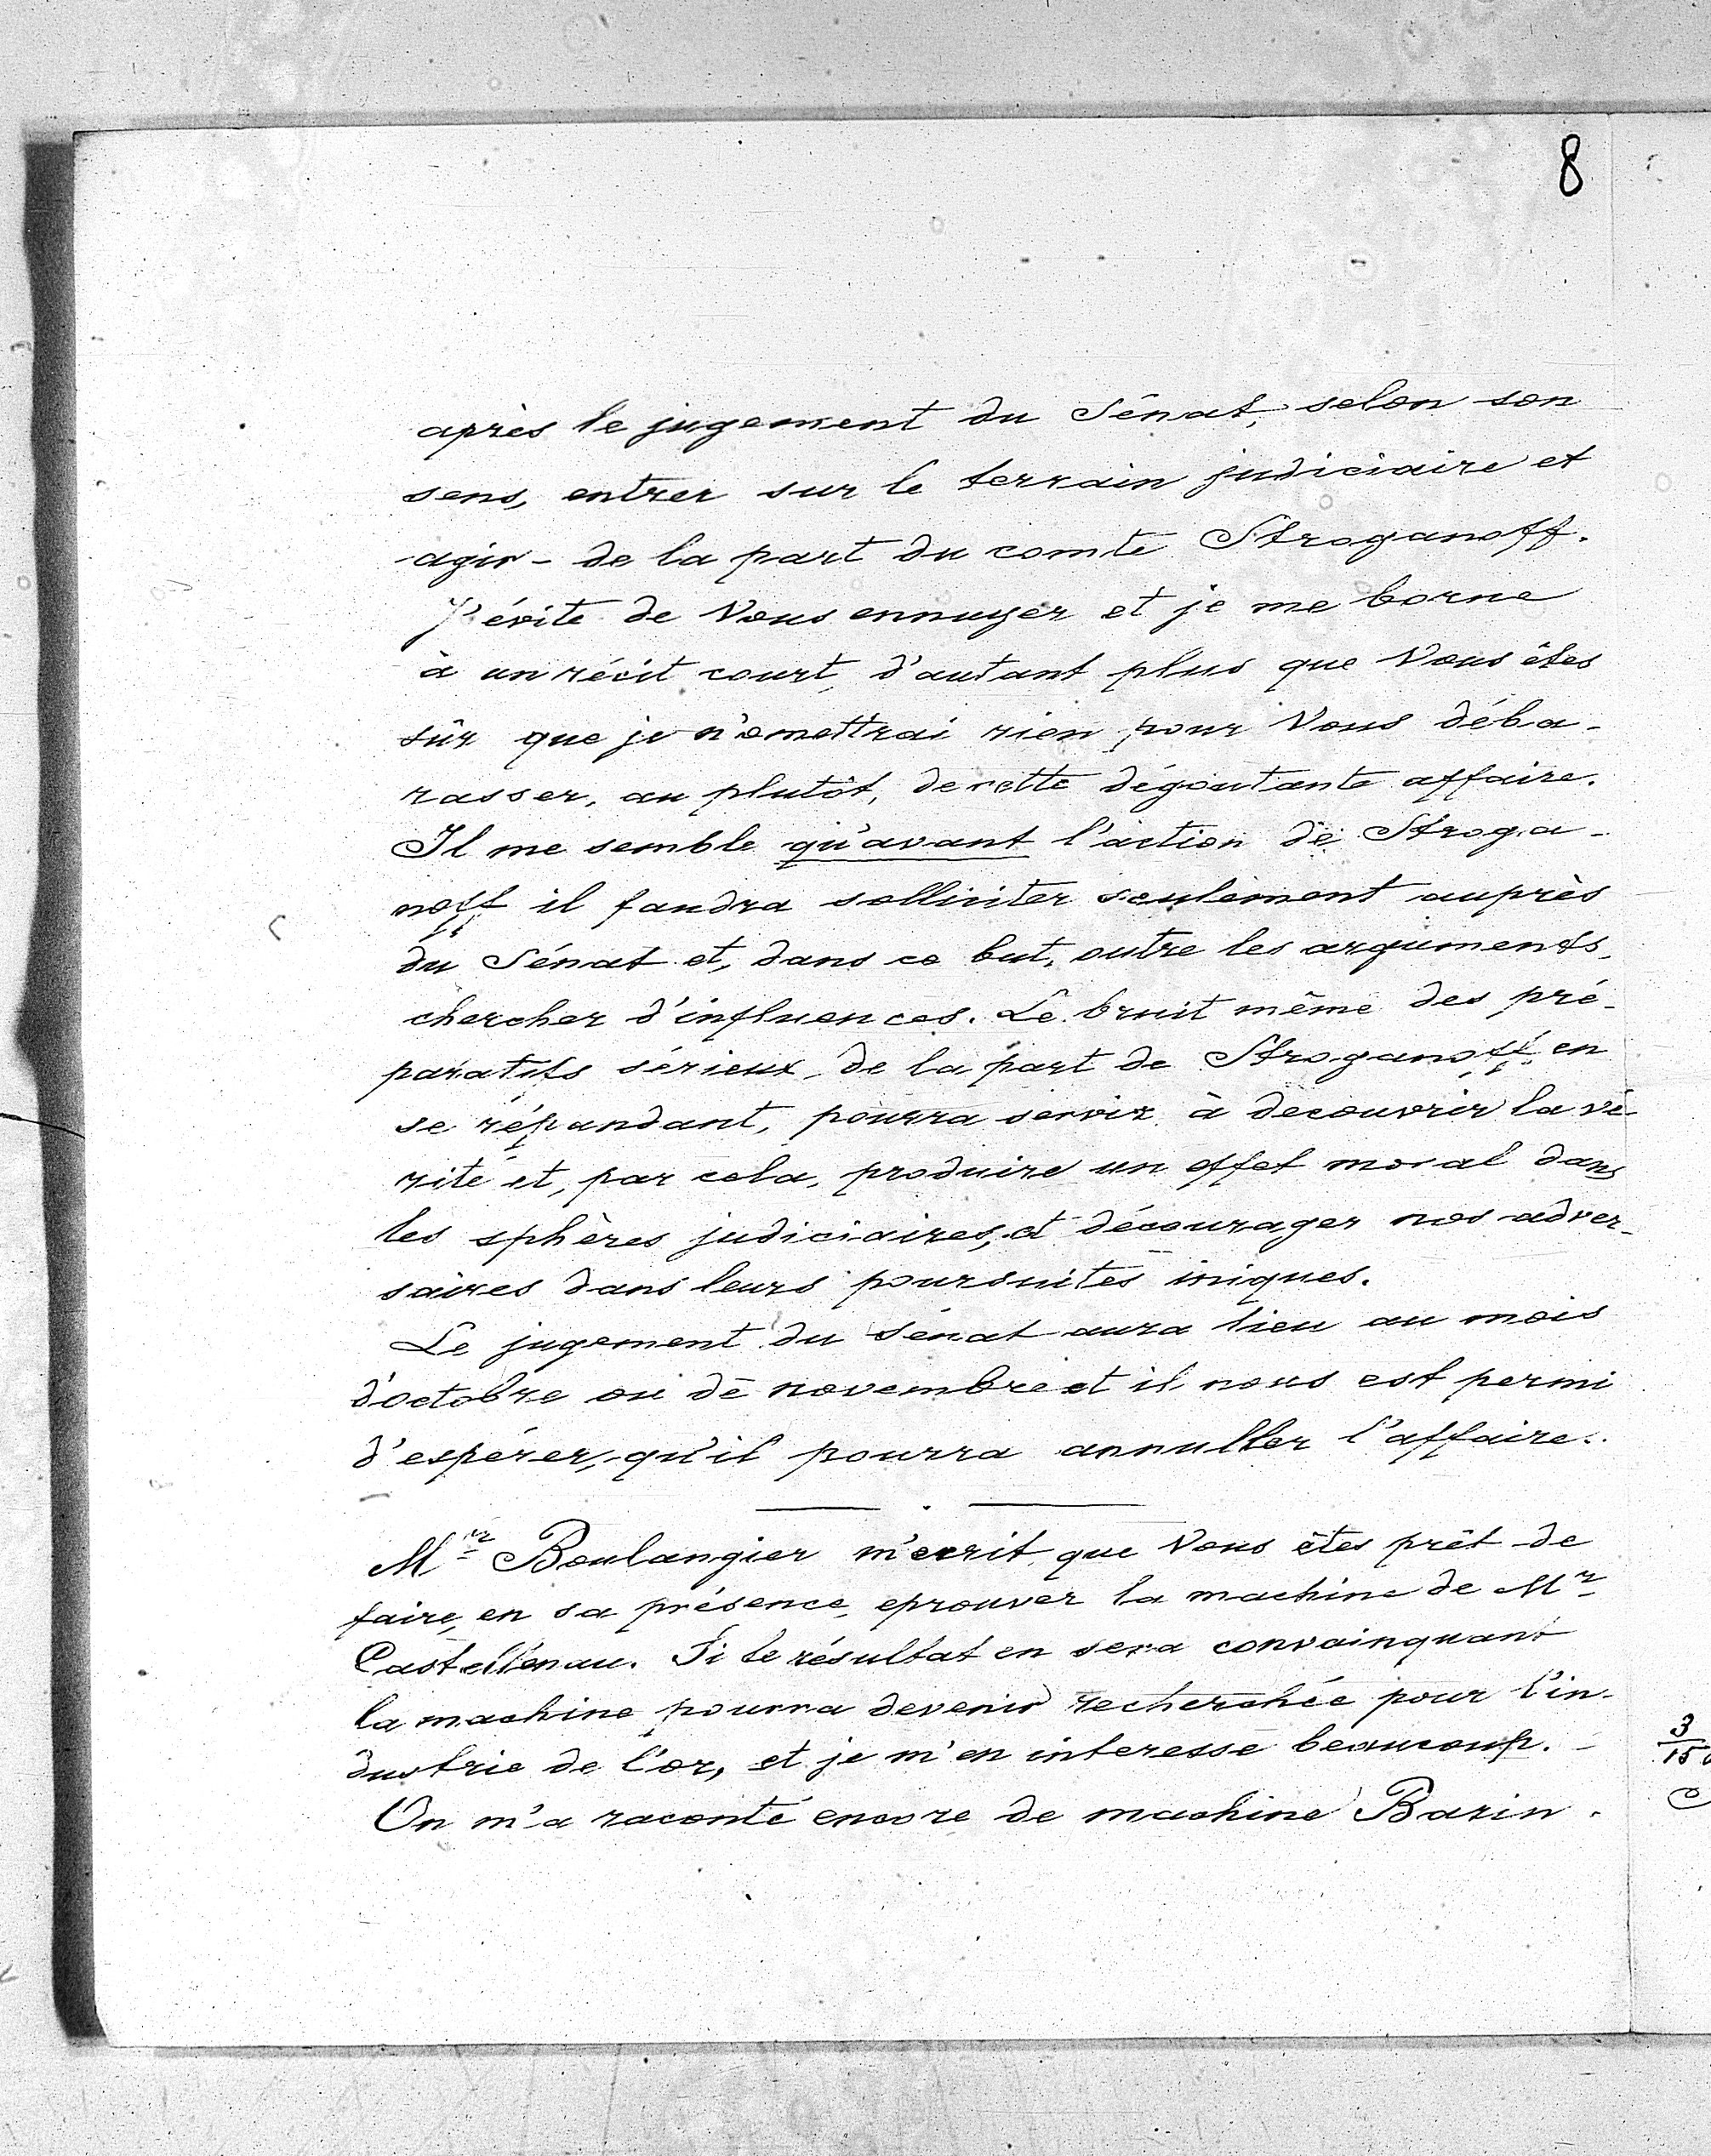 8
après le jugement du Sénat, selon son
sens, entrer sur le terrain judiciaire et
agir - de la part du comte Stroganoff.
J'évite de Vous ennuyer et je me borne
à un récit court, d'autant plus que Vous êtes
sûr que je n'omettrai rien pour Vous déba-
rasser, au plutôt, de cette dégoutante affaire.
Il me semble qu'avant l'action de Stroga-
noff il faudra solliciter seulement auprès
du Sénat et, dans ce but, outre les arguments,
chercher d'influences. Le bruit même des pré-
paratifs sérieux de la part de Stroganoff, en
se répandant, pourra servir à decouvrir la vé-
rité et, par cela, produire un effet moral dans
les sphères judiciaires, et décourager nos adver-
saires dans leurs poursuites iniques.
Le jugement du Sénat aura lieu au mois
d'octobre ou de novembre et il nous est permi
d'espérer, qu'il pourra annuller l'affaire.
Mr Boulangier m'ecrit, que Vous êtes prêt de
faire, en sa présence, eprouver la machine de Mr
Castellenau. Si le résultat en sera convainquant
la machine pourra devenir recherchée pour l'in-
dustrie de l'or, et je m'en interesse beaucoup. -
On m'a raconté encore de machine Bazin.
3
15